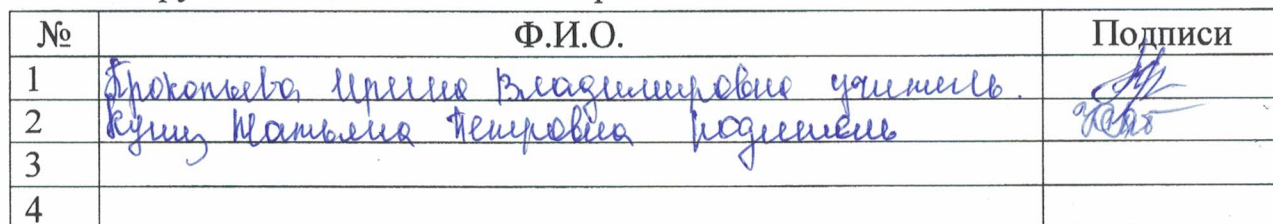 № Ф.И.О. Подписи
1 Прокопьева Ирина Владимировна учитель.
2 Кущ Татьяна Петровна родитель
3
4